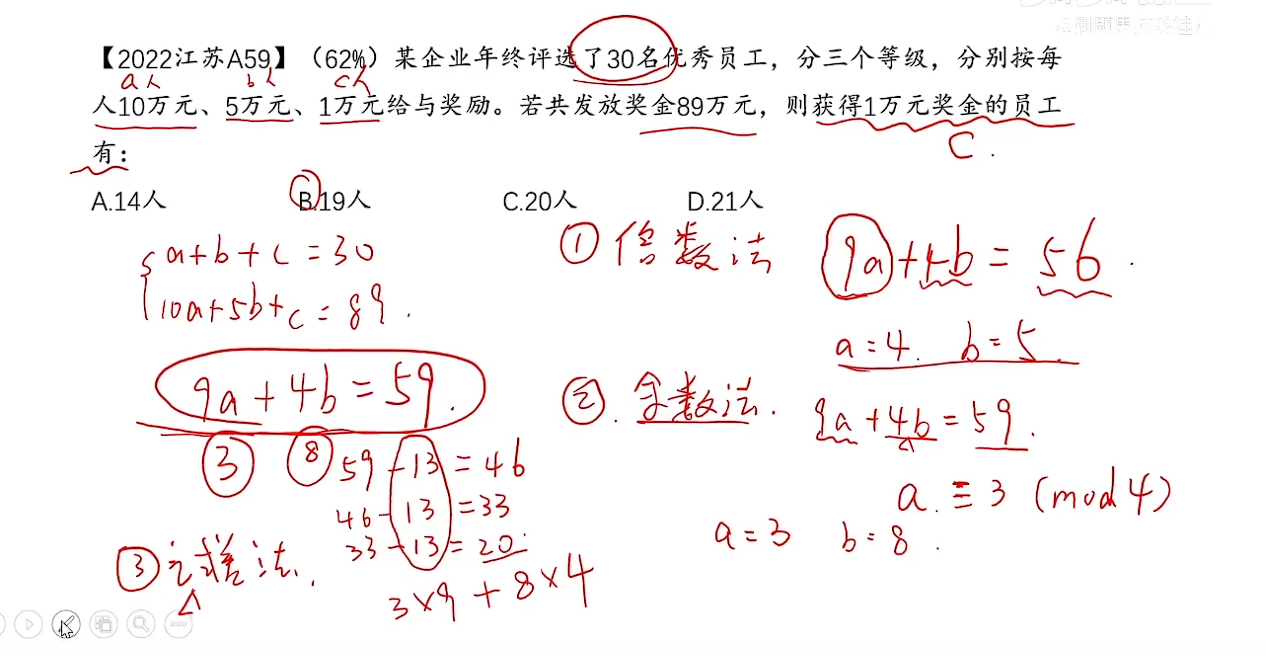 【2022江苏A59】（62%）某企业年终评选了30名优秀员工，分三个等级，分别按每
a人 b人 c人
人10万元、5万元、1万元给与奖励。若共发放奖金89万元，则获得1万元奖金的员工
有：
C.
A.14人 B.19人 C.20人 D.21人
a+b+c=30
10a+5b+c=89.
9a+4b=59.
3 8
59-13=46
46-13=33
33-13=20.
3×9+8×4
① 倍数法 9a+4b=56.
a=4. b=5.
②. 余数法. 9a+4b=59.
a.≡3 (mod 4)
a=3 b=8.
③ 法.